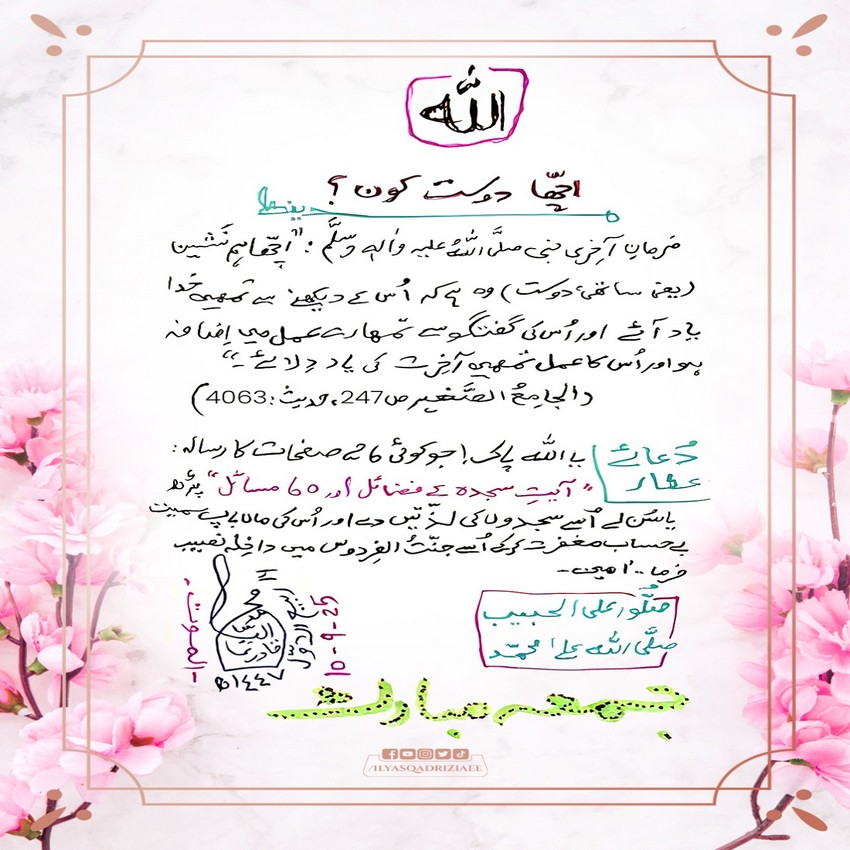 اللہ
اچّھا دوست کون؟
فرمانِ آخِری نبی صلَّی اللہُ علیہ واٰلہٖ وسلَّم: "اچّھا ہم نَشین
(یعنی ساتھی، دوست) وہ ہے کہ اُس کے دیکھنے سے تمھیں خدا
یاد آئے اور اُس کی گفتگو سے تمھارے عمل میں اِضافہ
ہو اور اُس کا عمل تمھیں آخرت کی یاد دِلائے۔"
(الجامِعُ الصَّغیر ص247، حدیث: 4063)
دُعائے عطار
یا اللہ پاک! جو کوئی صفحات کا رسالہ:
"آیتِ سجدہ کے فضائل اور مسائل" پڑھ
یا سُن لے اُسے سجدوں کی لذّتیں دے اور اُس کی ماں باپ سمیت
بے حساب مغفرت کر کے اُسے جنّتُ الفِردوس میں داخِلہ نصیب
فرما۔ اٰمین۔
صَلُّوا علی الحبیب
صلَّی اللہ علیٰ محمّد
ربیع الاوّل
١٤٤٧ھ
10-9-25
الموت
جمعہ مبارک
/ILYASQADRIZIAEE